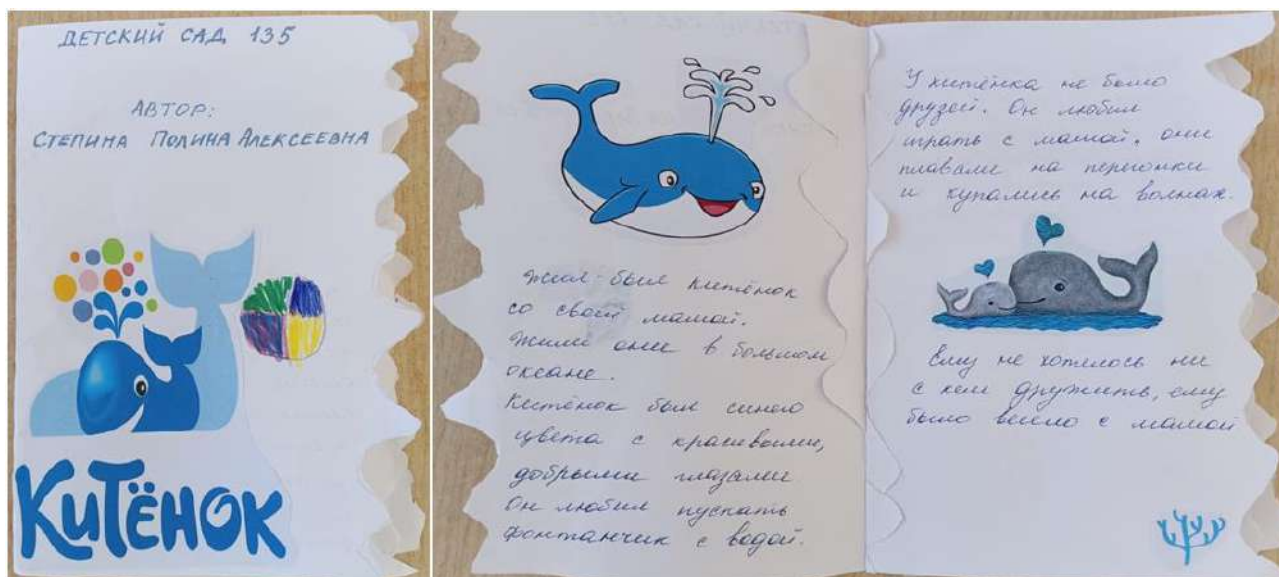 ДЕТСКИЙ САД 135
АВТОР:
СТЕПИНА ПОЛИНА АЛЕКСЕЕВНА
КИТЁНОК
Жил-был китёнок
со своей мамой.
Жили они в большом
океане.
Китёнок был синего
цвета с красивыми,
добрыми глазами
Он любил пускать
фонтанчик с водой.
У китёнка не было
друзей. Он любил
играть с мамой, они
плавали на перегонки
и купались на волнах.
Ему не хотелось ни
с кем дружить, ему
было весело с мамой